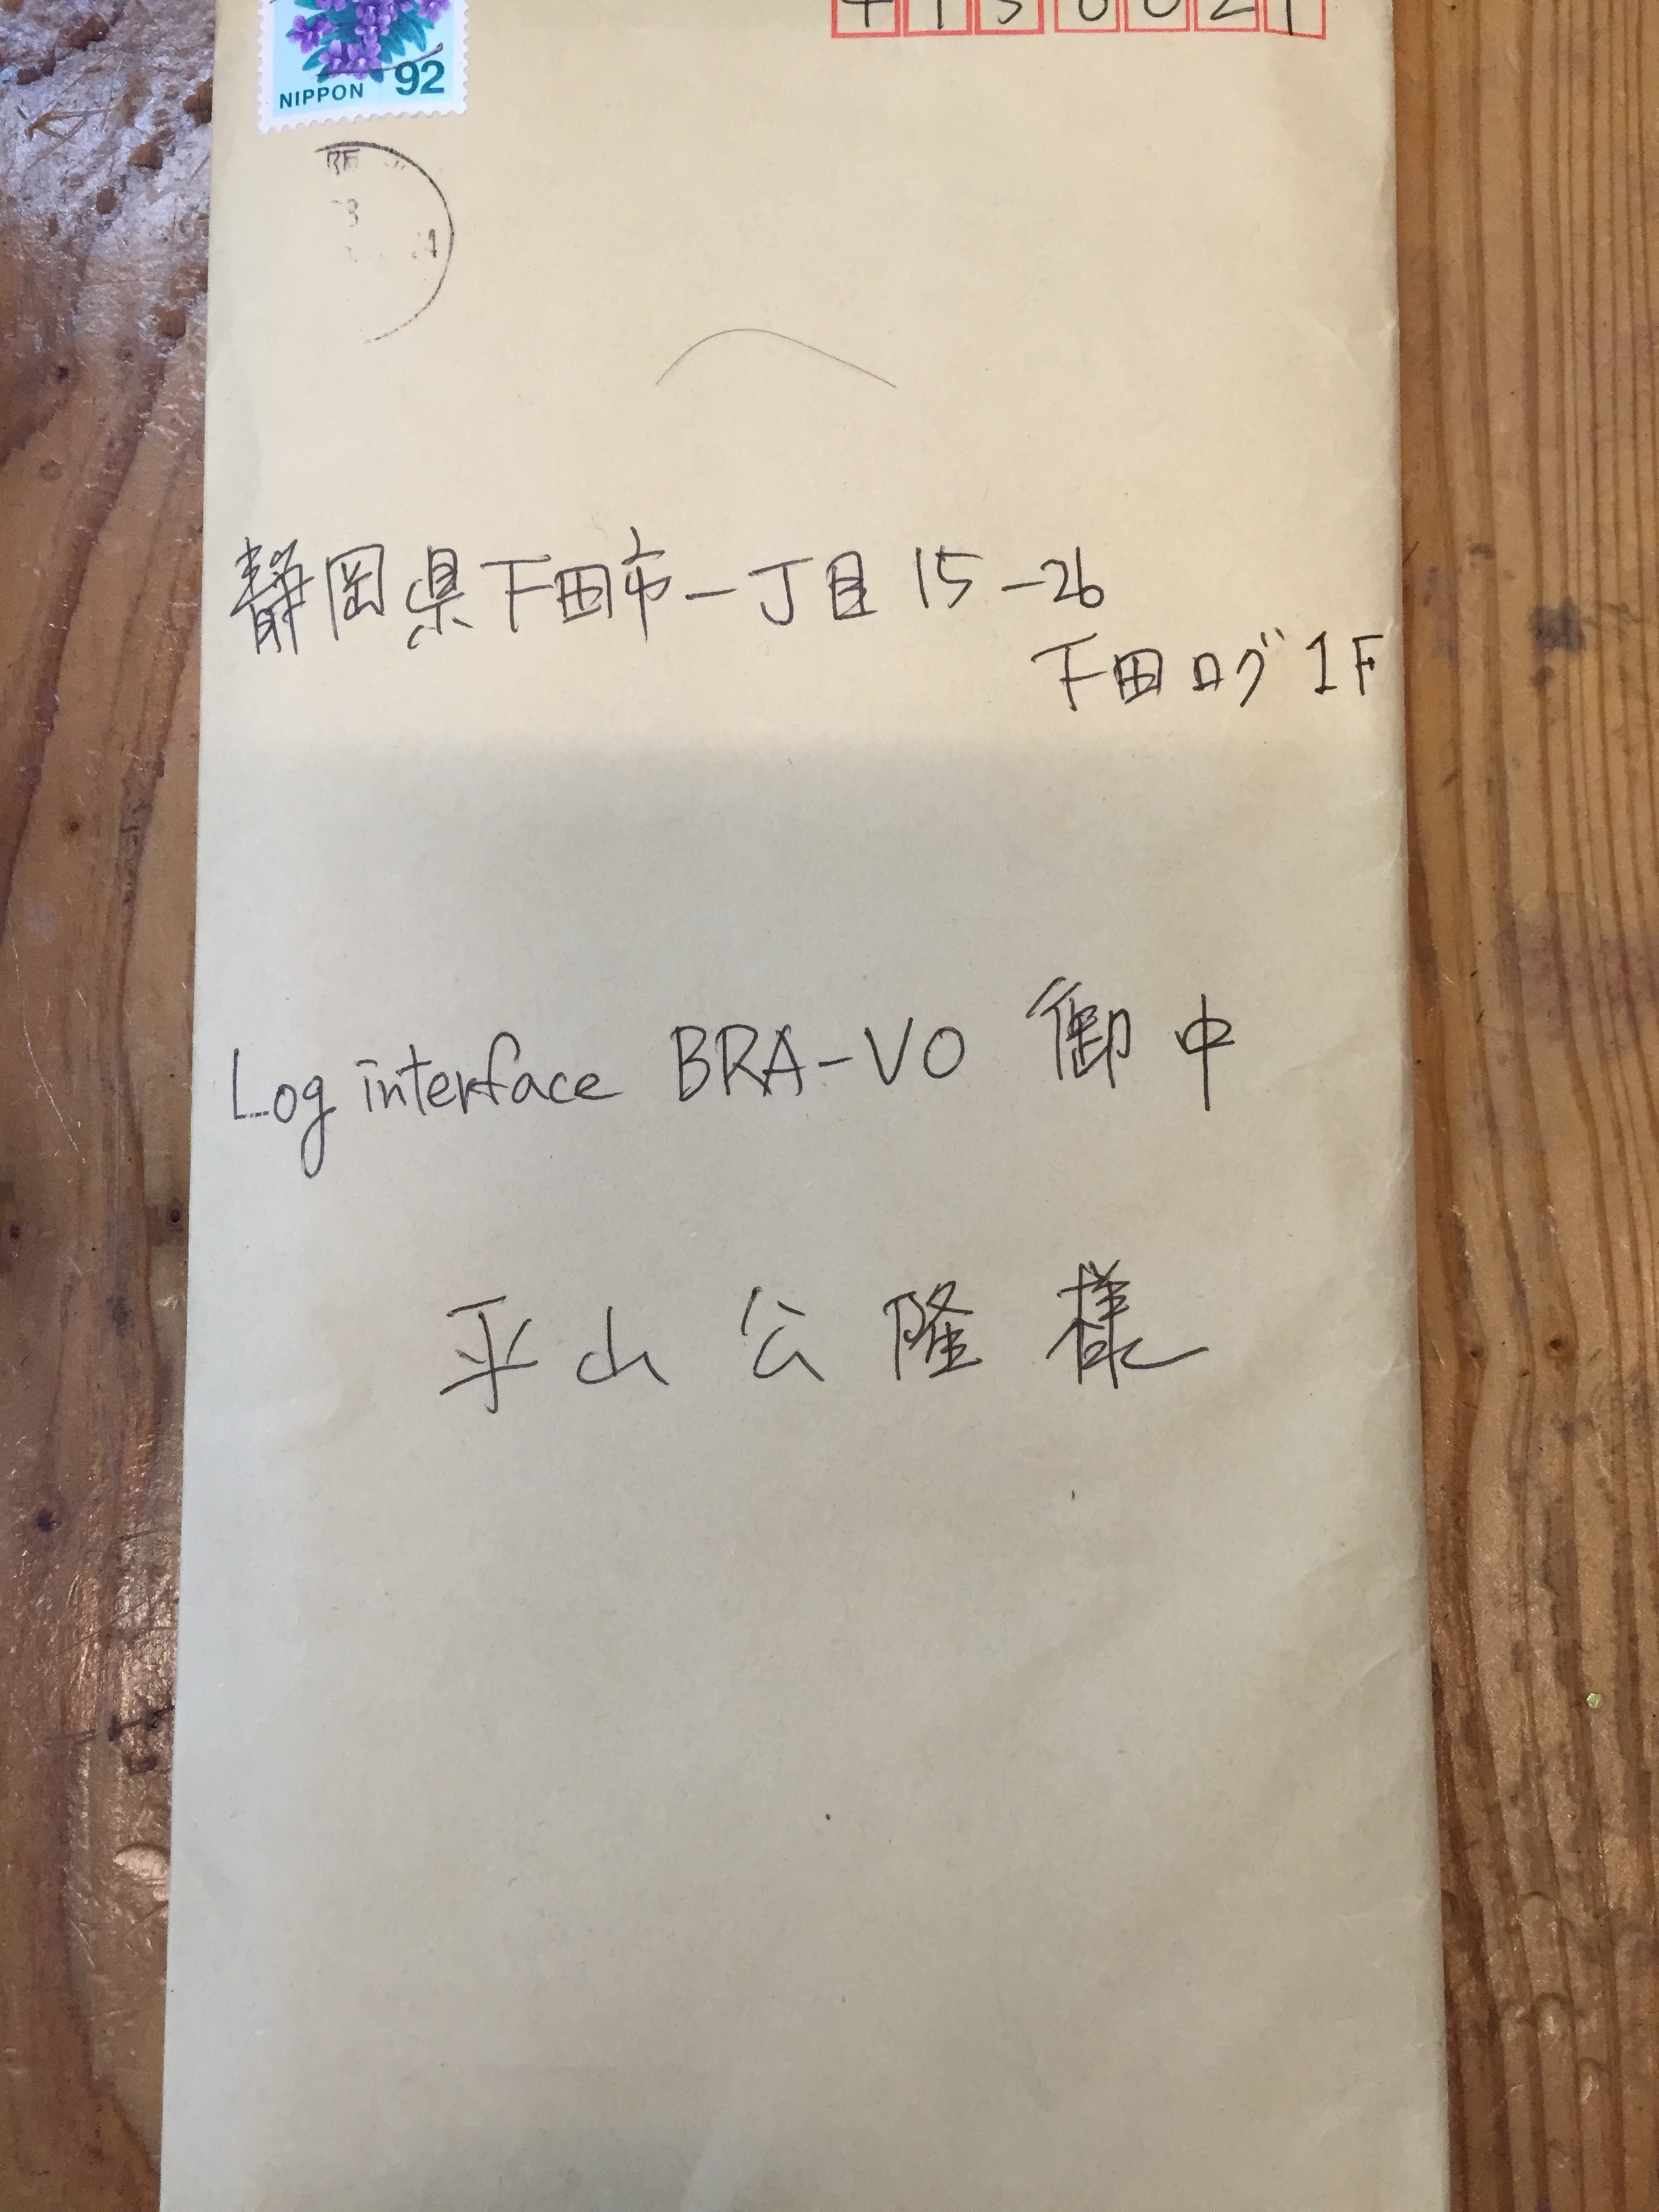 4150021
NIPPON 92
静岡県下田市一丁目15-26
下田ログ1F
Log interface BRA-VO 御中
平山公隆様